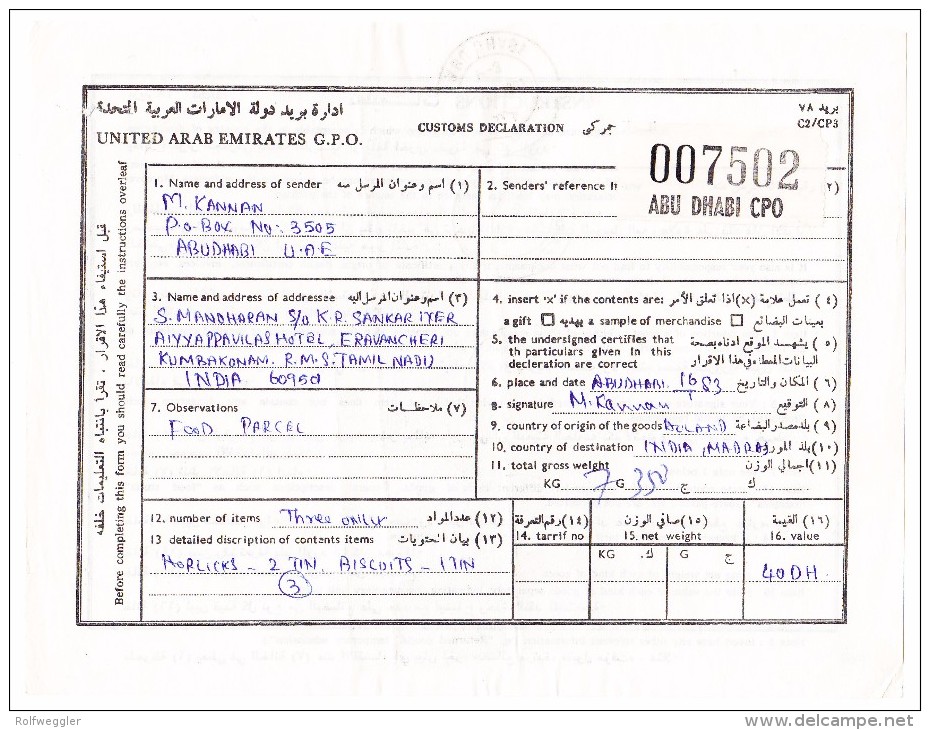 ادارة بريد دولة الامارات العربية المتحدة
UNITED ARAB EMIRATES G.P.O.
CUSTOMS DECLARATION جمركى
بريد ٧٨
C2/CP3
007502
ABU DHABI CPO
قبل استيفاء هذا الاقرار ، تقرأ بانتباه التعليمات خلفه
Before completing this form you should read carefully the instructions overleaf
1. Name and address of sender اسم وعنوان المرسل (١)
M. KANNAN
P.O.BOX NO: 3505
ABUDHABI U.A.E
2. Senders' reference ٢)
3. Name and address of addressee اسم وعنوان المرسل اليه (٣)
S. MANOHARAN S/O K.R. SANKAR IYER
AIYYAPPAVILAS HOTEL, ERAVANCHERI
KUMBAKONAM. R.M.S. TAMIL NADU
INDIA
4. insert 'x' if the contents are: (x) اذا تعلق الأمر تعمل علامة (٤)
a gift يهديه a sample of merchandise بعينات البضائع
5. the undersigned certifies that يشهد الموقع ادناه بصحة (٥)
th particulars given in this
decleration are correct البيانات المعطاه في هذا الاقرار
6. place and date ABUDHABI. المكان والتاريخ (٦)
7. Observations ملاحظات (٧)
FOOD PARCEL
8. signature M. Kannan التوقيع (٨)
9. country of origin of the goods بلد مصدر البضاعة (٩)
10. country of destination INDIA, MADRAS (١٠)
11. total gross weight اجمالي الوزن (١١)
KG 7 G 350 ج ك
12. number of items Three only عدد المواد (١٢)
13 detailed discription of contents items بيان المحتويات (١٣)
HORLICKS - 2 TIN, BISCUITS - 1 TIN
3
رقم التعرفة (١٤)
14. tarrif no
صافي الوزن (١٥)
15. net weight
KG ك. G ج
القيمة (١٦)
16. value
40 DH.
Rolfweggler
www.delcampe.net